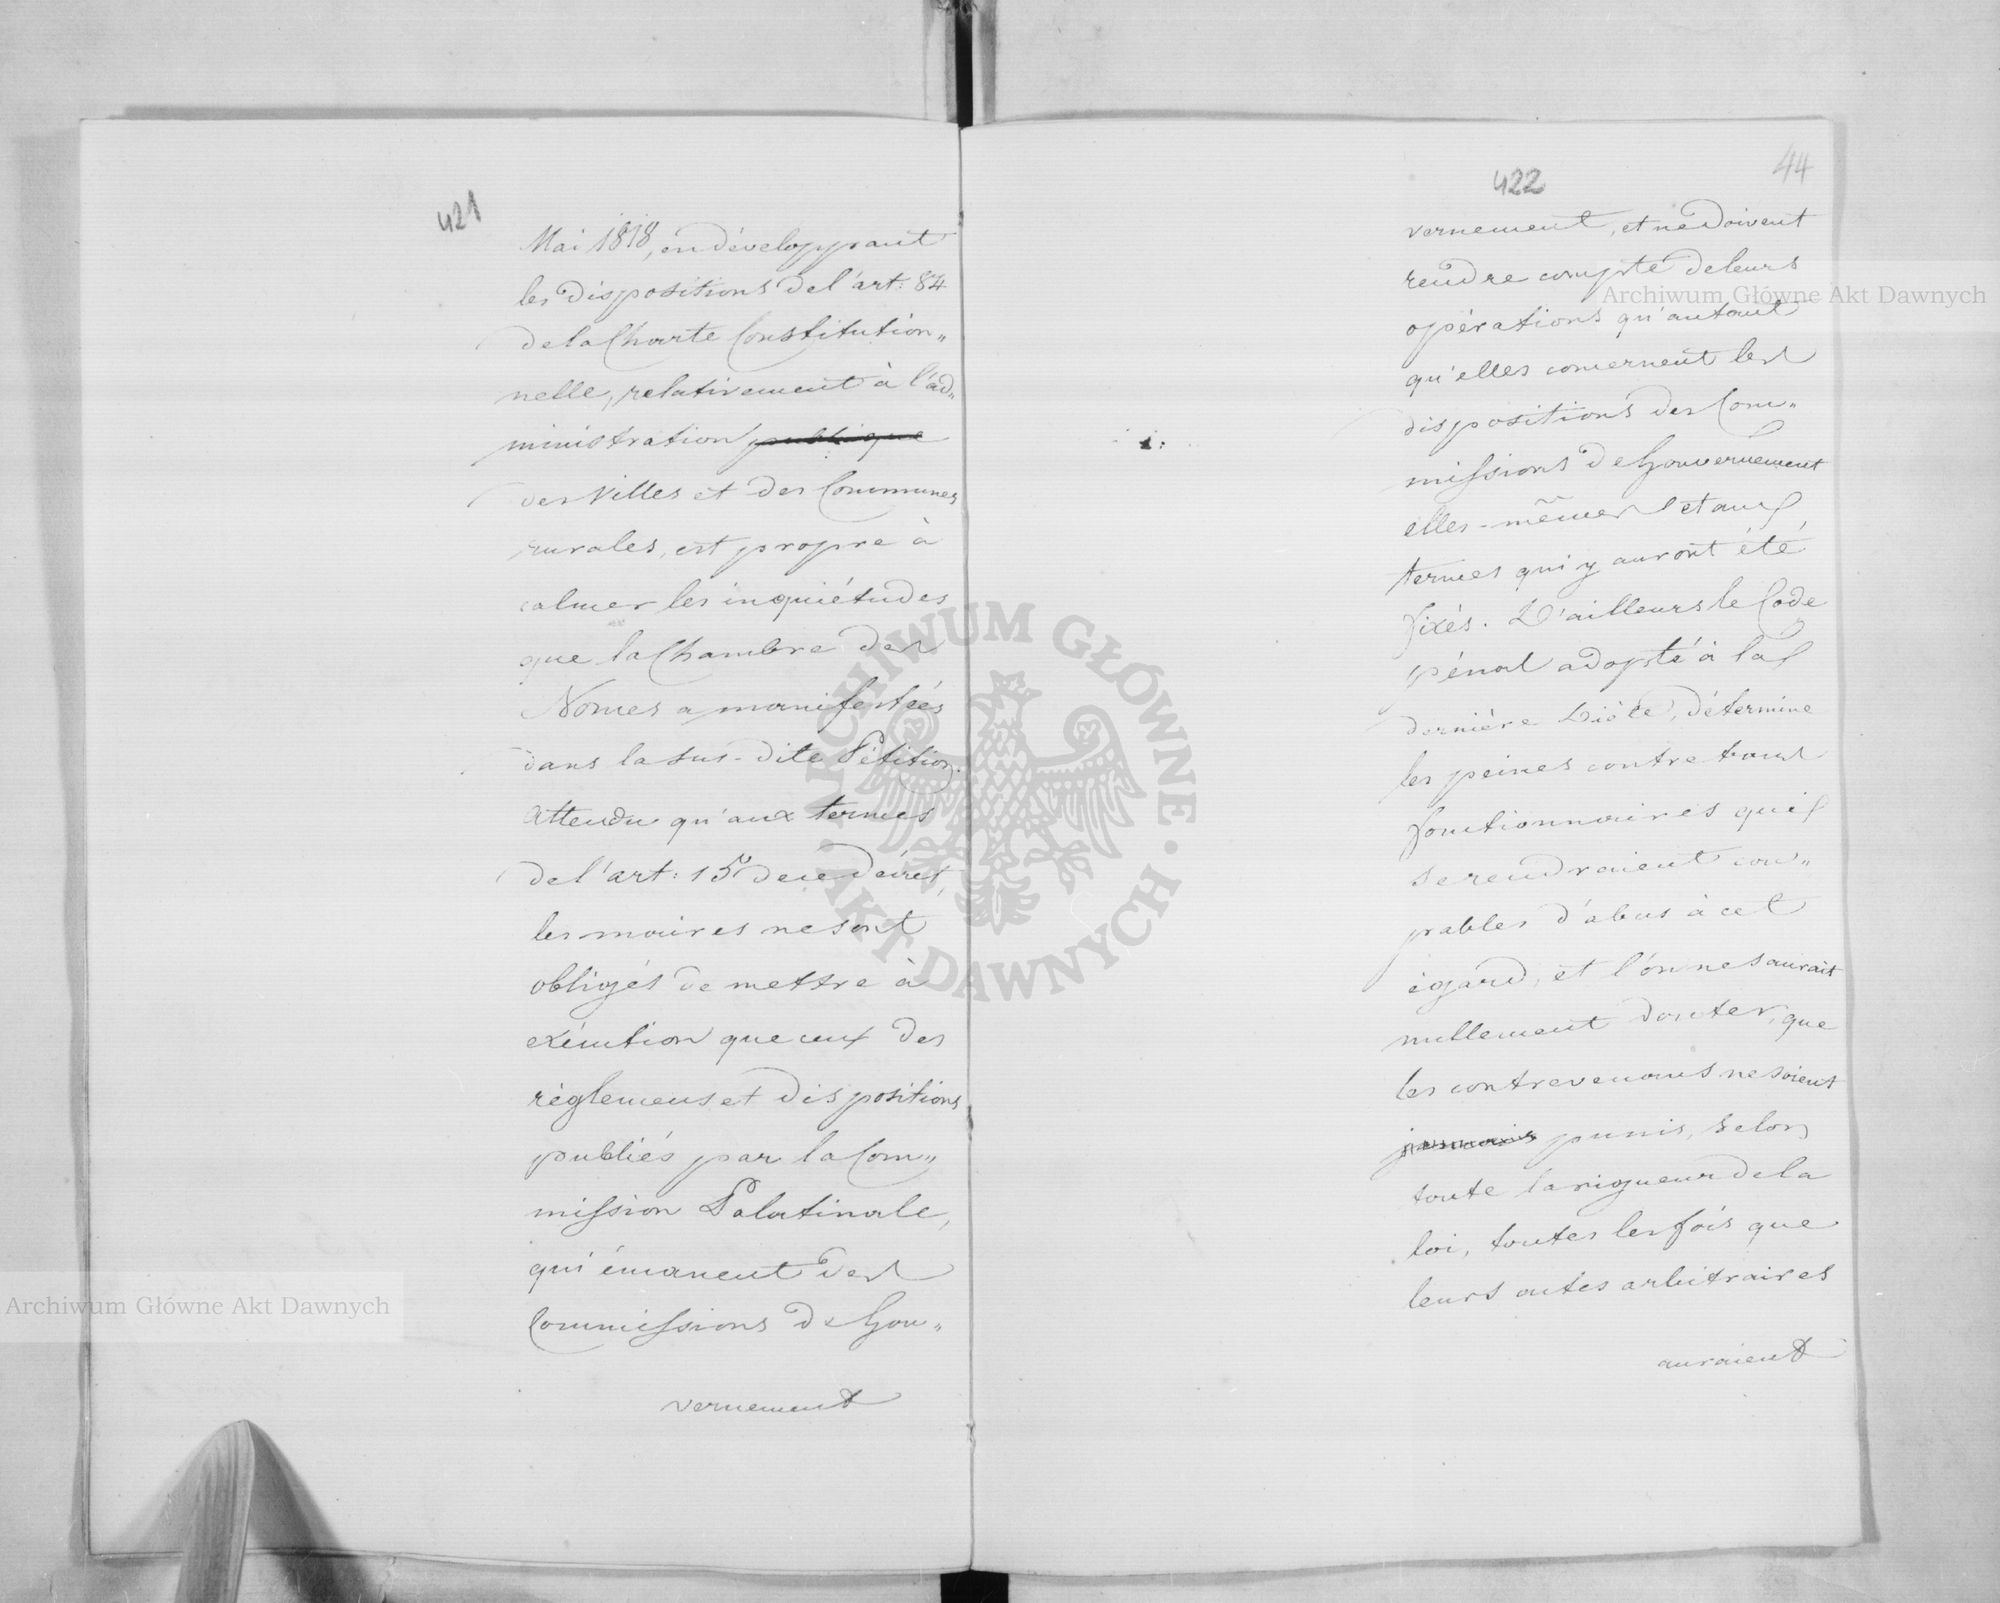 421
Mai 1818, en développant
les dispositions de l'art: 84
de la Charte Constitution„
nelle, relativement à l'ad„
ministration publique
des Villes et des Communes
rurales, est propre à
calmer les inquiétudes
que la Chambre des
Nonces a manifestées
dans la sus-dite Pétition.
Attendu qu'aux termes
de l'art: 15 de ce décret,
les maires ne sont
obligés de mettre à
exécution que ceux des
règlemens et dispositions
publiés par la Com„
mission Palatinale,
qui émanent des
Commissions de Gou„
vernement
422
44
vernement, et ne doivent
rendre compte de leurs
opérations qu'autant
qu'elles concernent les
dispositions des Com„
missions de Gouvernement
elles-mêmes et aux
termes qui y auront été
fixés. D'ailleurs le Code
pénal adopté à la
dernière Diète, détermine
les peines contre tous
fonctionnaires qui
se rendraient cou„
pables d'abus à cet
égard, et l'on ne saurait
nullement douter, que
les contrevenans ne soient
jamais punis, selon
toute la rigueur de la
loi, toutes les fois que
leurs actes arbitraires
auraient
Archiwum Główne Akt Dawnych
Archiwum Główne Akt Dawnych
ARCHIWUM GŁÓWNE · AKT DAWNYCH ·